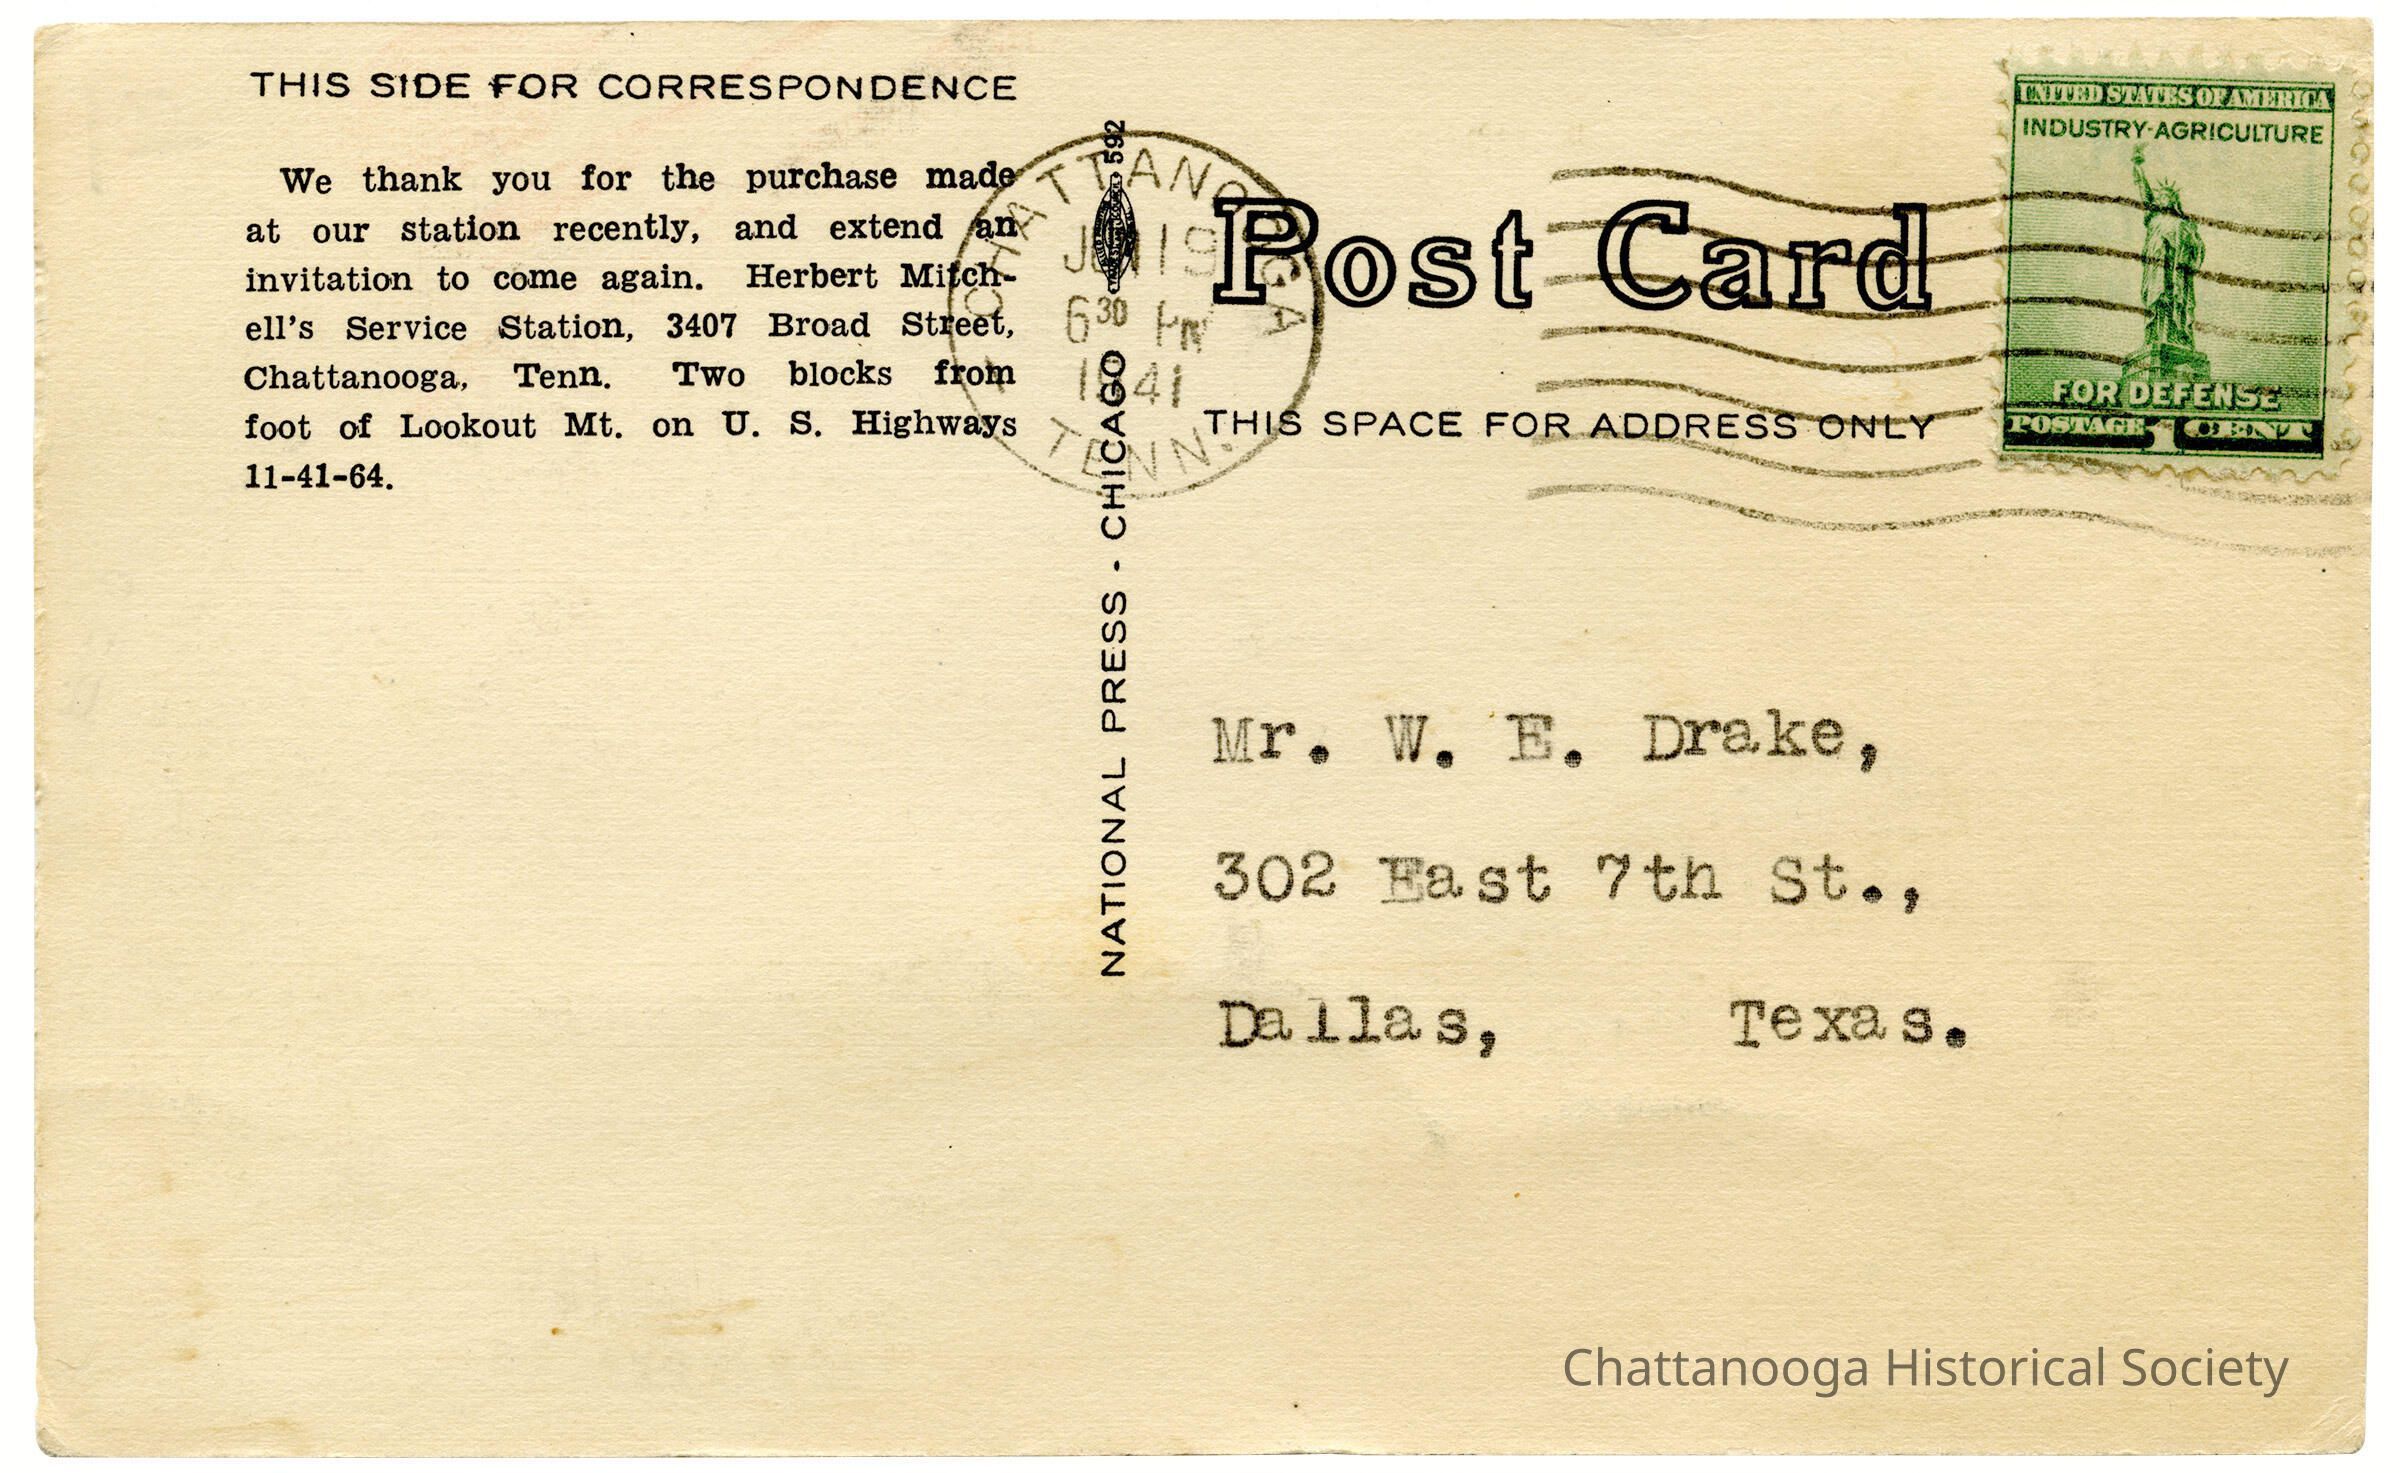 THIS SIDE FOR CORRESPONDENCE
We thank you for the purchase made
at our station recently, and extend an
invitation to come again. Herbert Mitch-
ell's Service Station, 3407 Broad Street,
Chattanooga, Tenn. Two blocks from
foot of Lookout Mt. on U. S. Highways
11-41-64.
NATIONAL PRESS · CHICAGO
592
CHATTANOOGA
19
6 30 PM
1941
TENN.
Post Card
THIS SPACE FOR ADDRESS ONLY
UNITED STATES OF AMERICA
INDUSTRY-AGRICULTURE
FOR DEFENSE
POSTAGE 1 CENT
Mr. W. E. Drake,
302 East 7th St.,
Dallas, Texas.
Chattanooga Historical Society